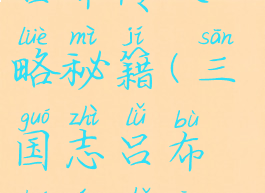 lüè mì jí sān
略秘籍(三
guó zhì lǚ bù
国志吕布